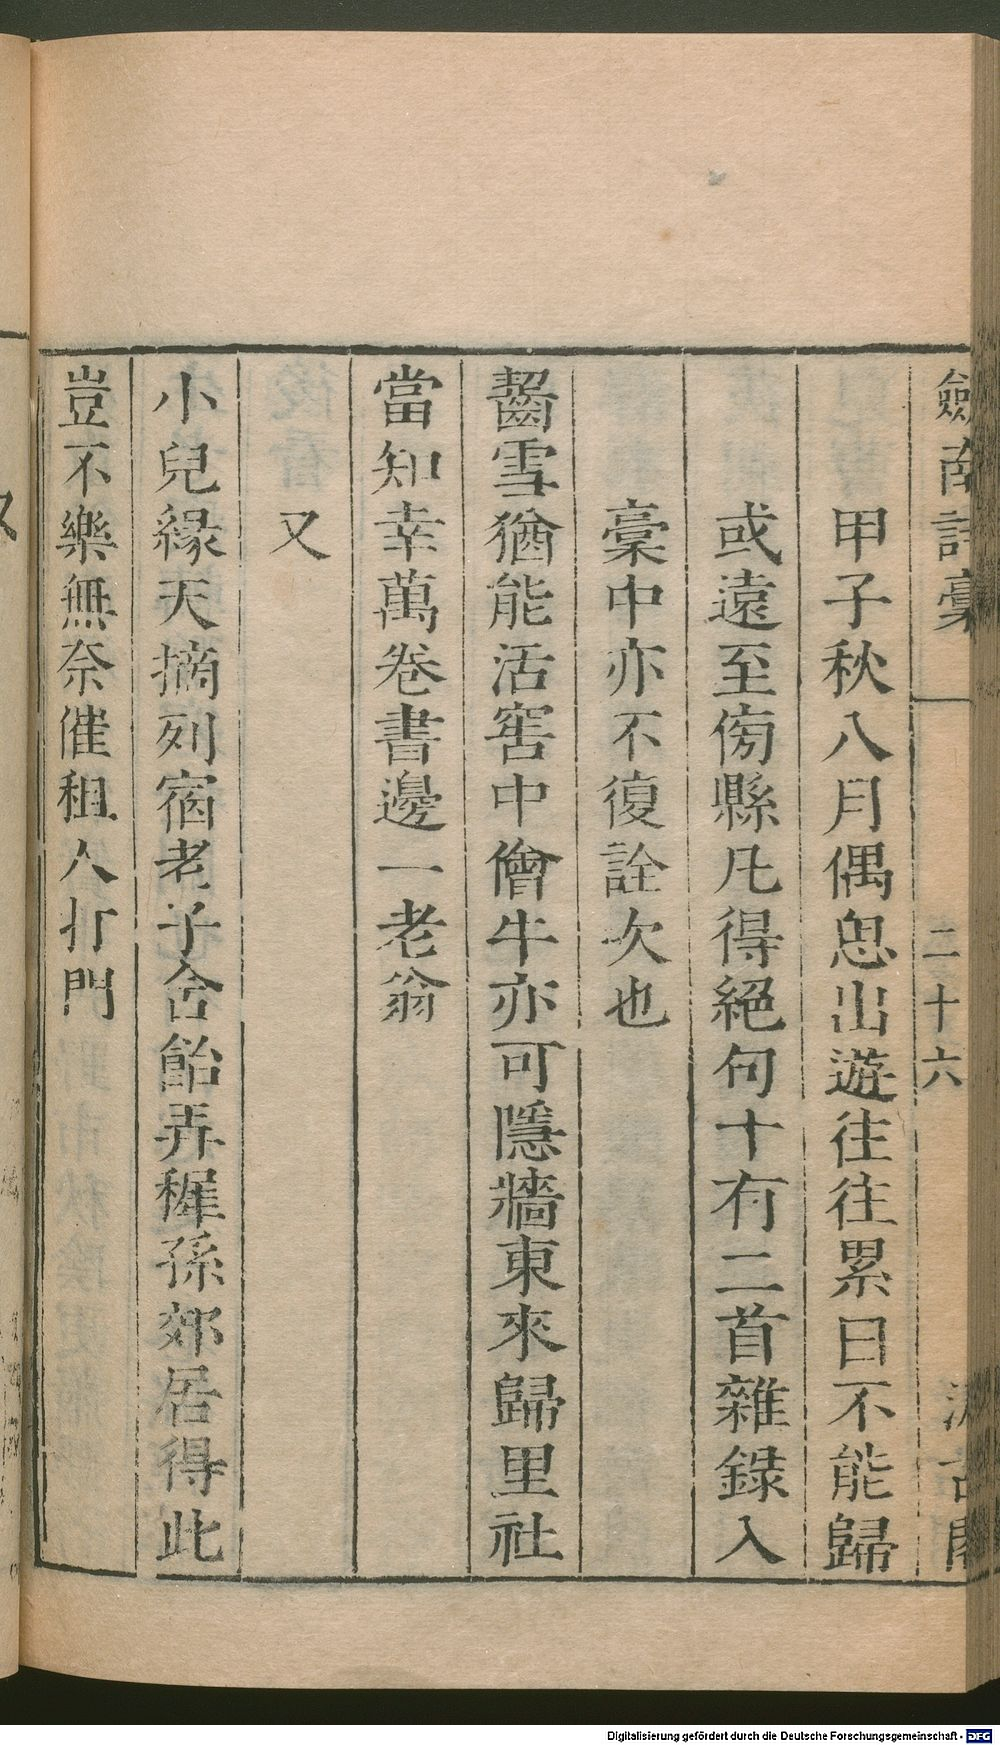 劍南詩稾
二十六
汲古閣
甲子秋八月偶思出遊往往累日不能歸
或遠至傍縣凡得絕句十有二首雜錄入
稾中亦不復詮次也
齧雪猶能活窖中儈牛亦可隱牆東來歸里社
當知幸萬卷書邊一老翁
又
小兒緣天摘列宿老子含飴弄稺孫郊居得此
豈不樂無奈催租人打門
Digitalisierung gefördert durch die Deutsche Forschungsgemeinschaft - DFG